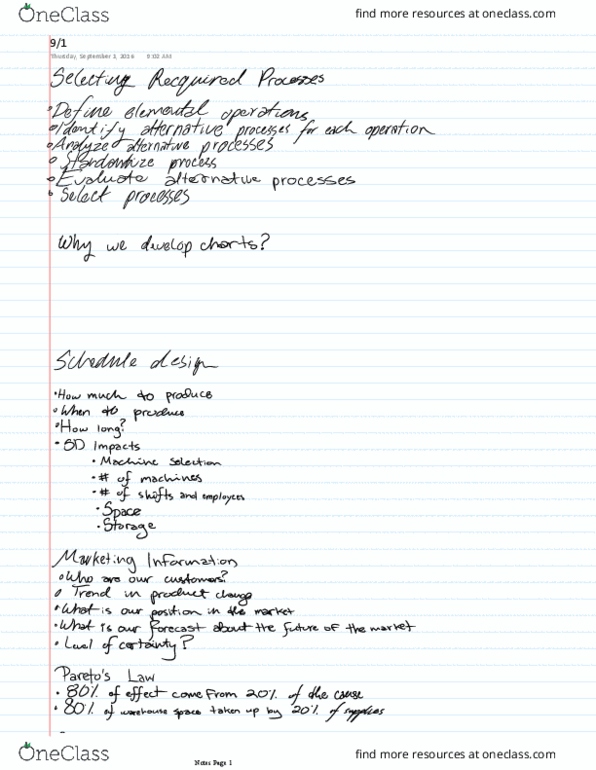 OneClass
find more resources at oneclass.com
9/1
Thursday, September 1, 2016 9:02 AM
Selecting Recquired Processes
• Define elemental operations
• Identify alternative processes for each operation
• Analyze alternative processes
• Standardize process
• Evaluate alternative processes
• Select processes
Why we develop charts?
Schedule design
• How much to produce
• When to produce
• How long?
• SD Impacts
• Machine Selection
• # of machines
• # of shifts and employees
• Space
• Storage
Marketing Information
• Who are our customers?
• Trend in product change
• What is our position in the market
• What is our forecast about the future of the market
• Level of certainty?
Pareto's Law
• 80% of effect come from 20% of the cause
• 80% of warehouse space taken up by 20% of supplies
OneClass
Notes Page 1
find more resources at oneclass.com